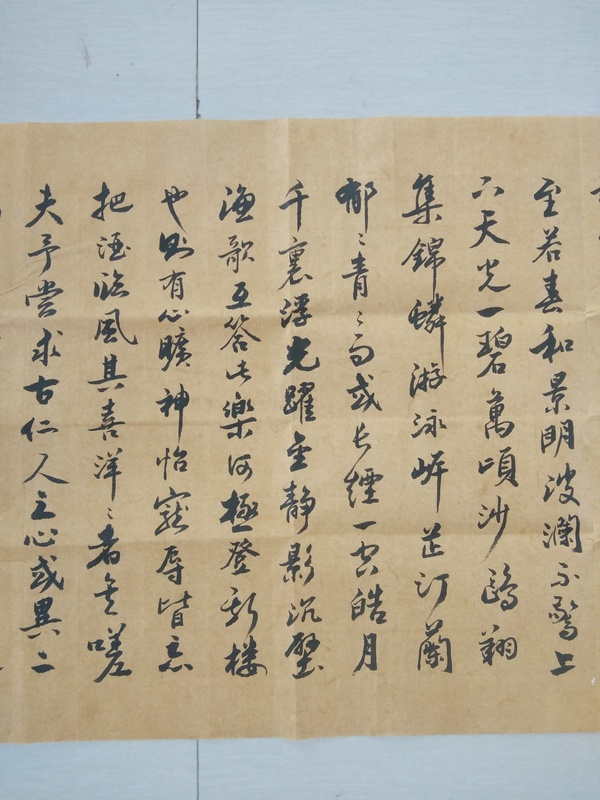 至若春和景明波瀾不驚上
下天光一碧萬頃沙鷗翔
集錦鱗游泳岸芷汀蘭
郁〻青〻而或長煙一空皓月
千裏浮光躍金靜影沉璧
漁歌互答此樂何極登斯楼
也則有心曠神怡寵辱皆忘
把酒臨風其喜洋〻者矣嗟
夫予嘗求古仁人之心或異二